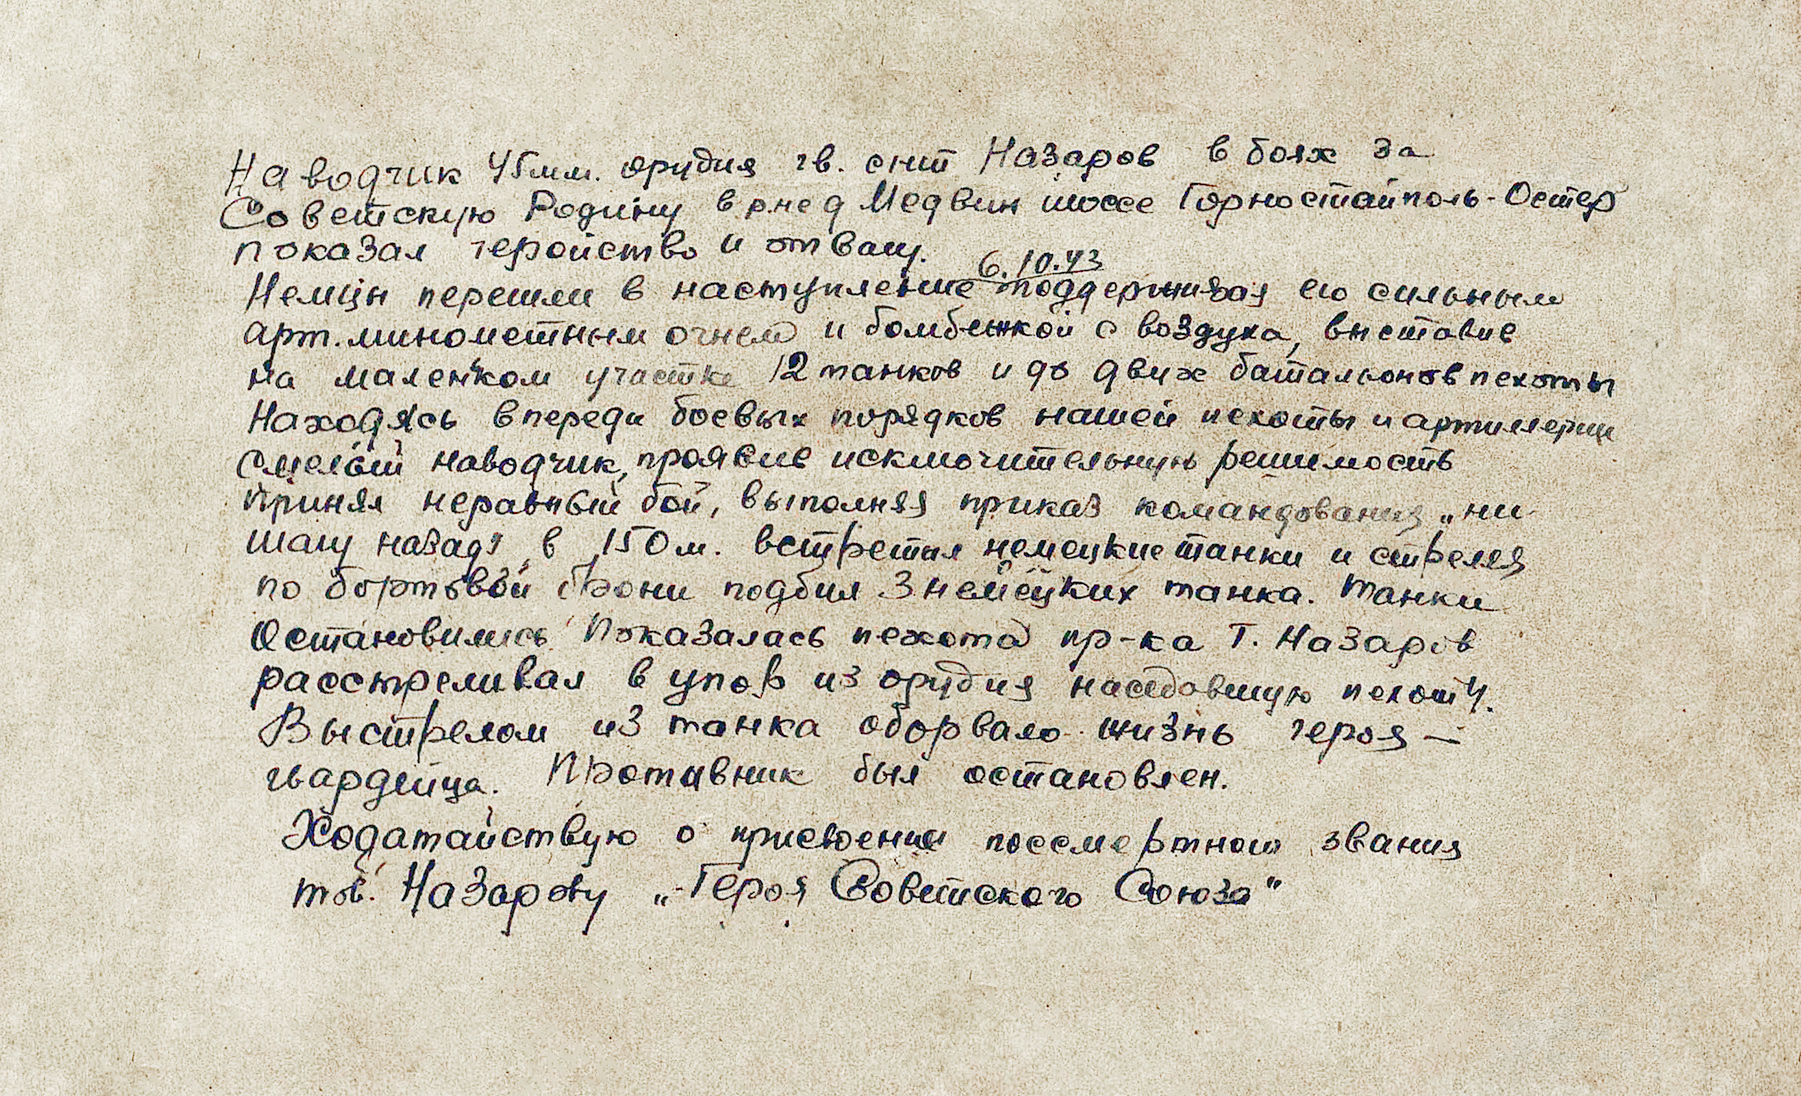 Наводчик 45мм. орудия гв. снт Назаров в боях за
Советскую Родину в р.не д Медвин шоссе Горностайполь-Остер
показал геройство и отвагу.
6.10.43
Немцы перешли в наступление поддерживая его сильным
арт.минометным огнем и бомбежкой с воздуха, выставив
на маленьком участке 12 танков и до двух батальонов пехоты
Находясь впереди боевых порядков нашей пехоты и артиллерии
смелый наводчик, проявив исключительную решимость
принял неравный бой, выполняя приказ командования „ни
шагу назад" в 150м. встретил немецкие танки и стреляя
по бортовой брони подбил 3 немецких танка. Танки
остановились Показалась пехота пр-ка т. Назаров
расстреливал в упор из орудия наседавшую пехоту.
Выстрелом из танка оборвало жизнь героя —
гвардейца. Противник был остановлен.
Ходатайствую о присвоении посмертного звания
тов. Назарову „Героя Советского Союза"